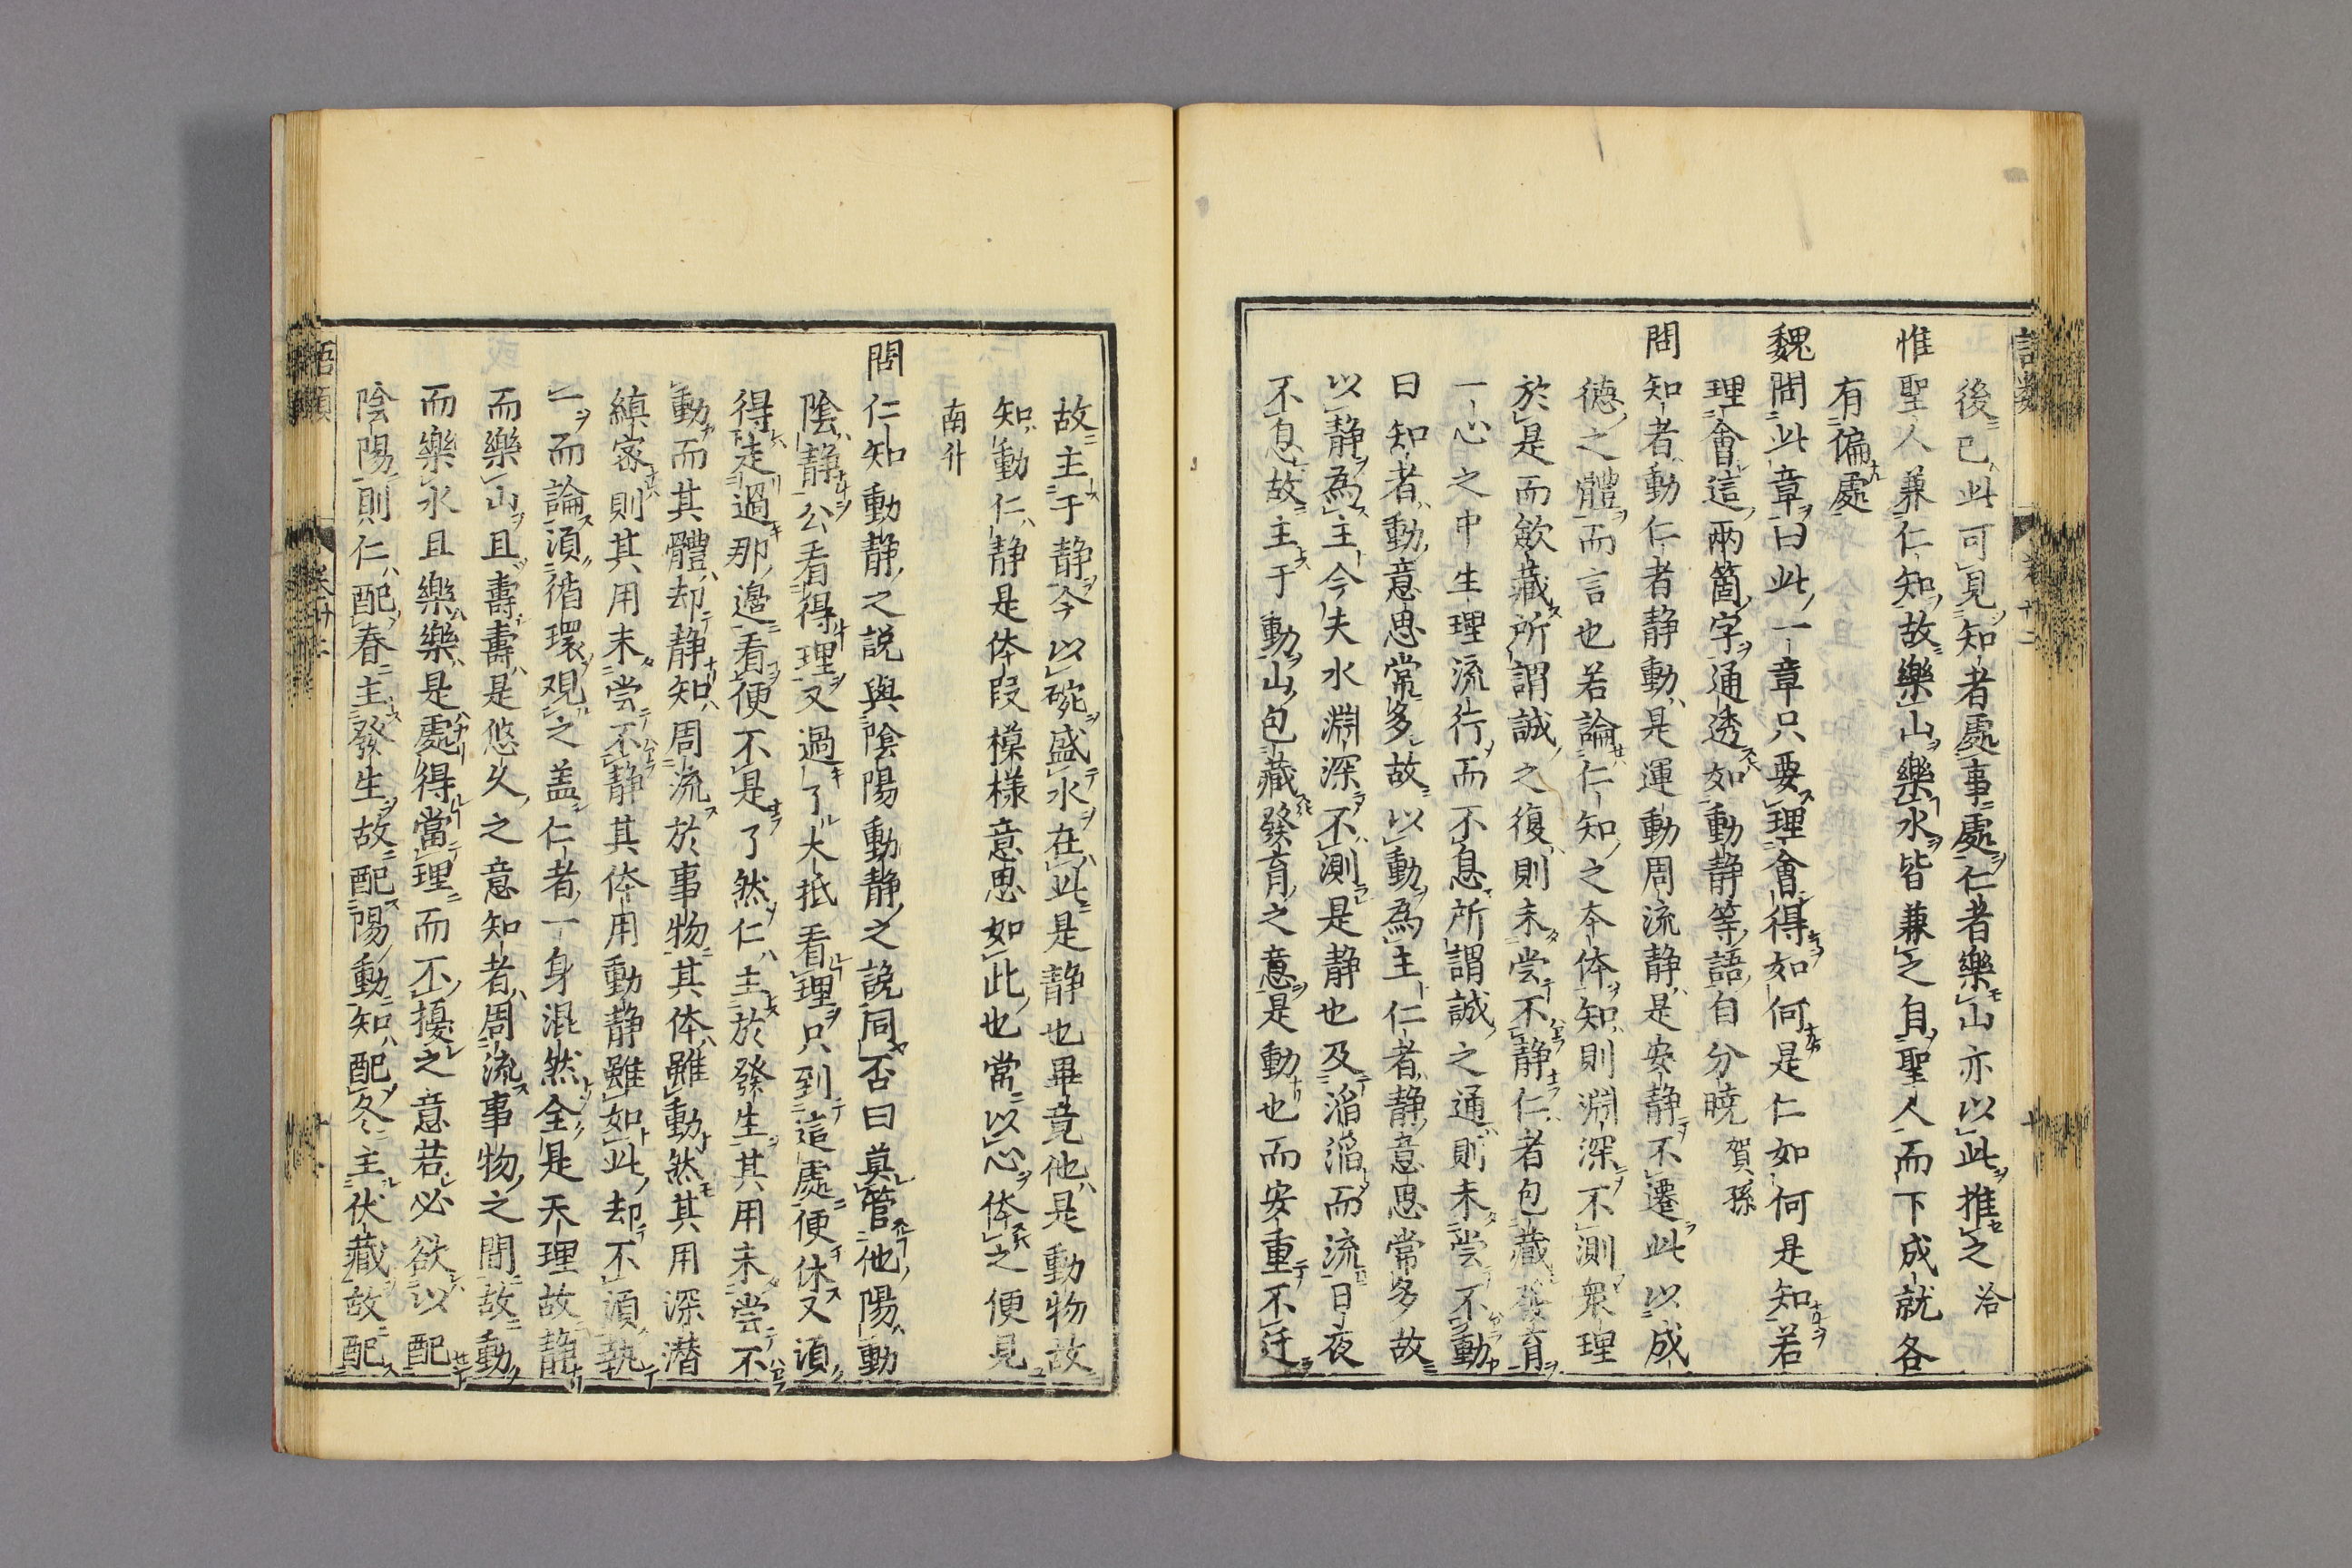 後已此可見知者處事處仁者樂山亦以此推之 洽
惟聖人兼仁知故樂山樂水皆兼之自聖人而下成就各
有偏處
魏問此章曰此一章只要理會得如何是仁如何是知若
理會這兩箇字通透如動静等語自分曉 賀孫
問知者動仁者静動是運動周流静是安静不遷此以成
德之體而言也若論仁知之本体知則淵深不測衆理
於是而歛藏所謂誠之復則未尝不静仁者包藏發育
一心之中生理流行而不息所謂誠之通則未尝不動
曰知者動意思常多故以動為主仁者静意思常多故
以静為主今夫水淵深不測是静也及滔滔而流日夜
不息故主于動山包藏發育之意是動也而安重不迁
故主于静今以碗盛水在此是静也畢竟他是動物故
知動仁静是体段模様意思如此也常以心体之便見
南升
問仁知動静之説與陰陽動静之説同否曰莫管他陽動
陰静公看得理又過了大抵看理只到這處便休又湏
得走過那邊看便不是了然仁主於發生其用未尝不
動而其體却静知周流於事物其体雖動然其用深潜
縝密則其用未尝不静其体用動静雖如此却不湏執
一而論湏循環观之盖仁者一身混然全是天理故静
而樂山且壽壽是悠久之意知者周流事物之間故動
而樂水且樂樂是處得當理而不擾之意若必欲以配
陰陽則仁配春主發生故配陽動知配冬主伏藏故配
語類
卷卅二
十